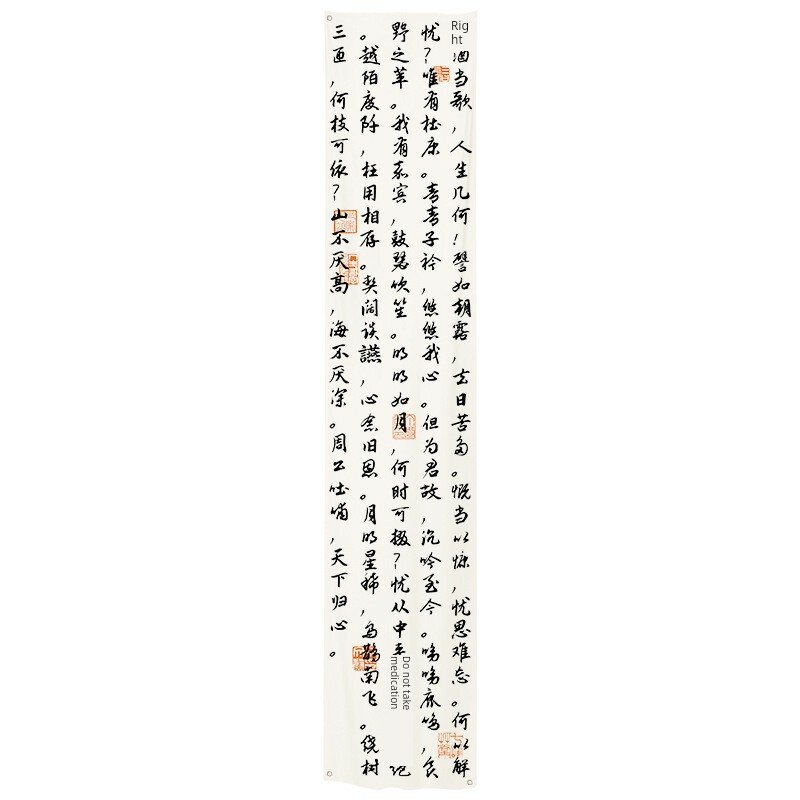 Right
酒当歌，人生几何！譬如朝露，去日苦多。慨当以慷，忧思难忘。何以解
忧？唯有杜康。青青子衿，悠悠我心。但为君故，沉吟至今。呦呦鹿鸣，食
野之苹。我有嘉宾，鼓瑟吹笙。明明如月，何时可掇？忧从中
Do not take
medication
绝
。越陌度阡，枉用相存。契阔谈讌，心念旧恩。月明星稀，乌鹊南飞。绕树
三匝，何枝可依？山不厌高，海不厌深。周公吐哺，天下归心。